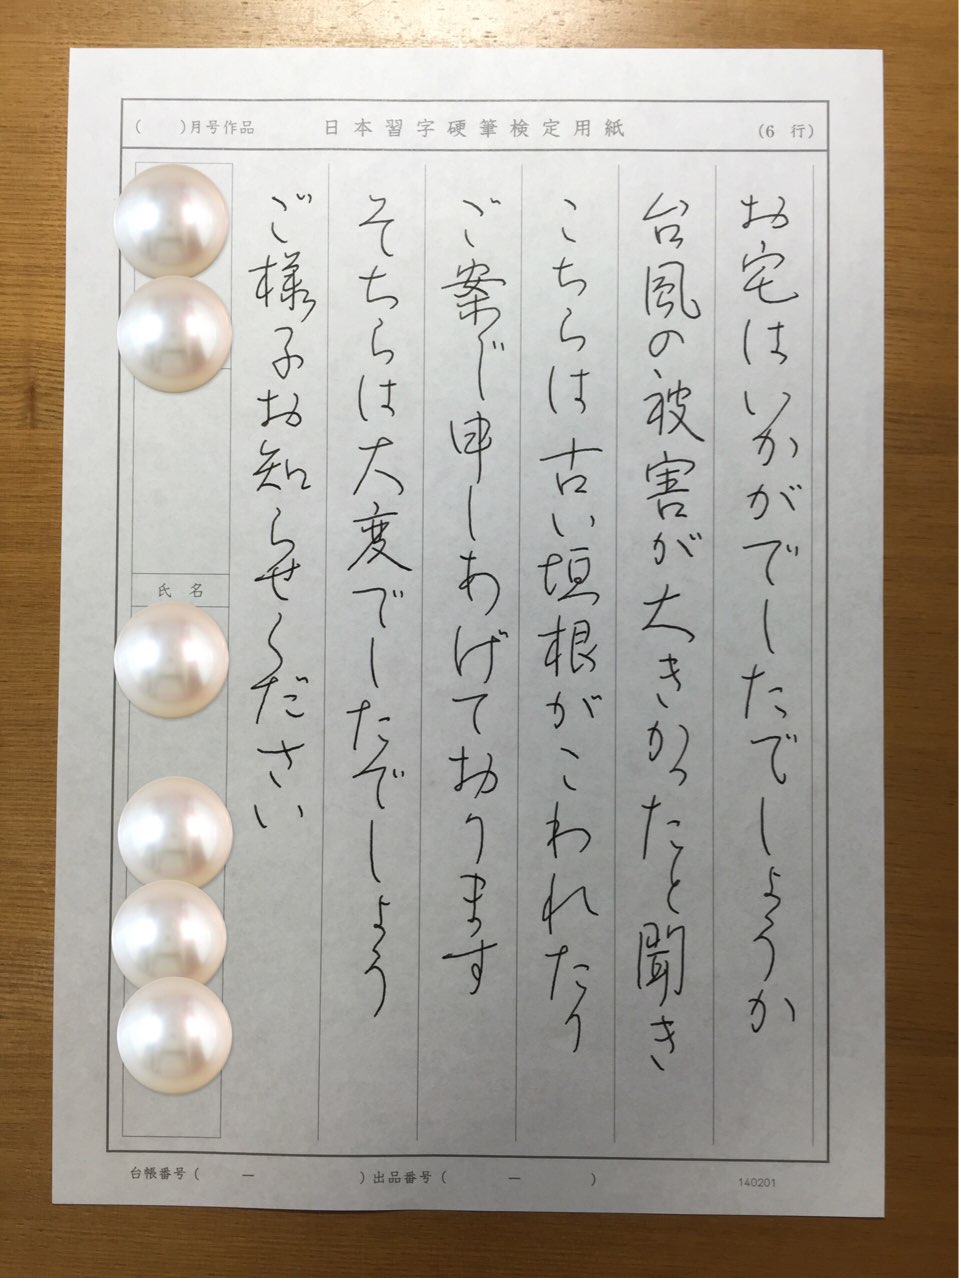 (　　)月号作品　日本習字硬筆検定用紙　(6 行)
お宅はいかがでしたでしょうか
台風の被害が大きかったと聞き
こちらは古い垣根がこわれたり
ご案じ申しあげております
そちらは大変でしたでしょう
ご様子お知らせください
氏名
台帳番号(　　－　　)出品番号(　　－　　)　140201